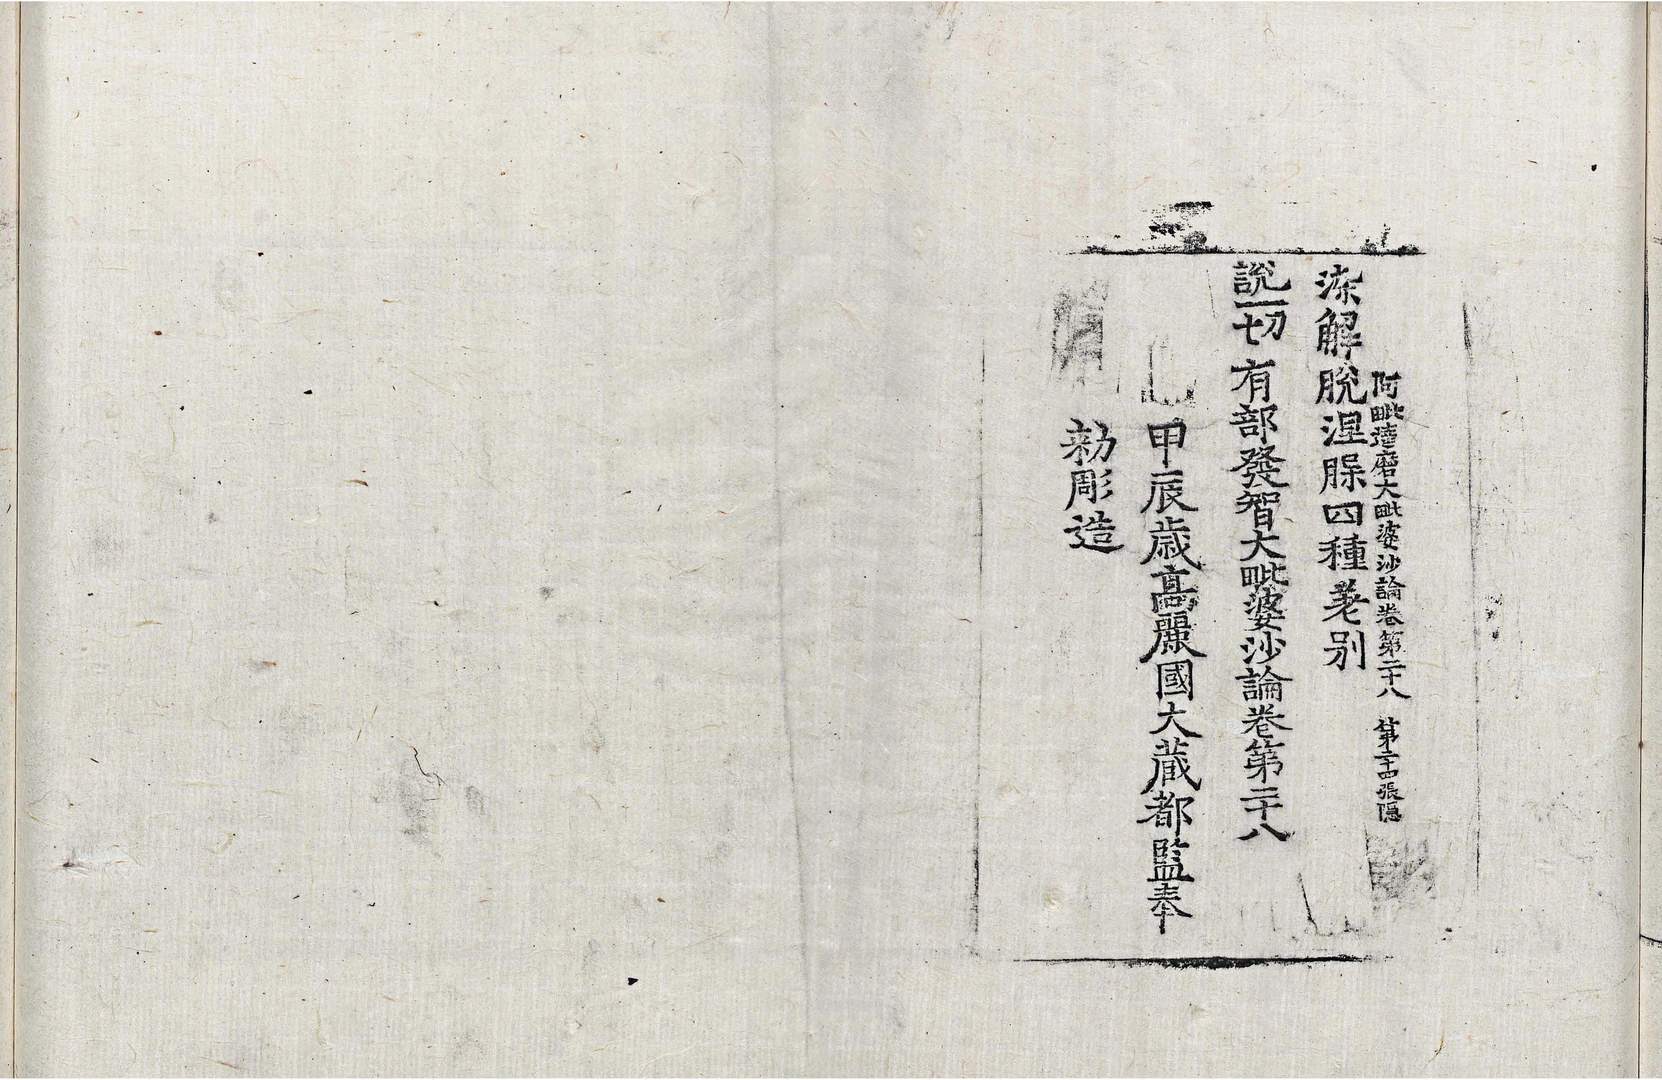 阿毗達磨大毗婆沙論卷第二十八 第二十四張隱
深解脫涅臊四種差别
說一切有部發智大毗婆沙論卷第二十八
甲辰歲高麗國大藏都監奉
勑彫造